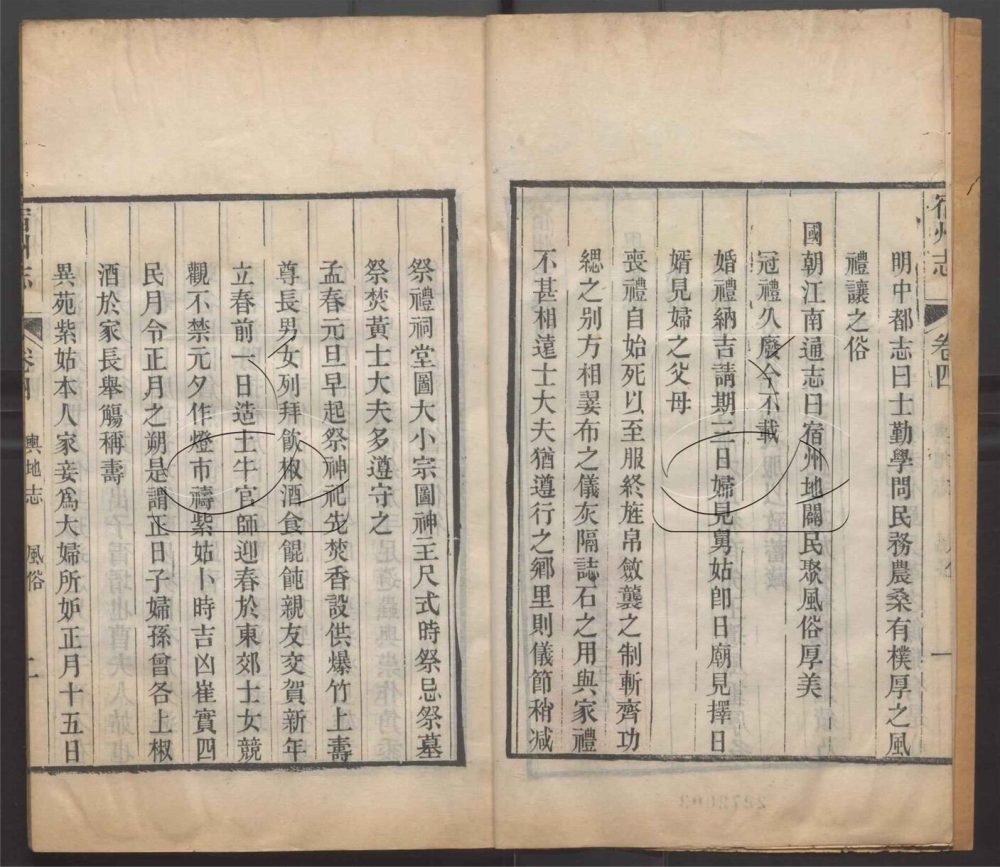 明中都志曰士勤學問民務農桑有樸厚之風
禮讓之俗
國朝江南通志曰宿州地闢民聚風俗厚美
冠禮久廢今不載
婚禮納吉請期三日婦見舅姑卽日廟見擇日
婿見婦之父母
喪禮自始死以至服終旌帛斂襲之制斬齊功
緦之别方相翣布之儀灰隔誌石之用與家禮
不甚相遠士大夫猶遵行之鄉里則儀節稍减
宿州志 卷四 一
祭禮祠堂圖大小宗圖神主尺式時祭忌祭墓
祭焚黃士大夫多遵守之
孟春元旦早起祭神祀先焚香設供爆竹上壽
尊長男女列拜飲椒酒食餛飩親友交賀新年
立春前一日造土牛官師迎春於東郊士女競
觀不禁元夕作燈市禱紫姑卜時吉凶崔寔四
民月令正月之朔是謂正日子婦孫曾各上椒
酒於家長舉觴稱壽
異苑紫姑本人家妾爲大婦所妒正月十五日
宿州志 卷四 輿地志 風俗 二